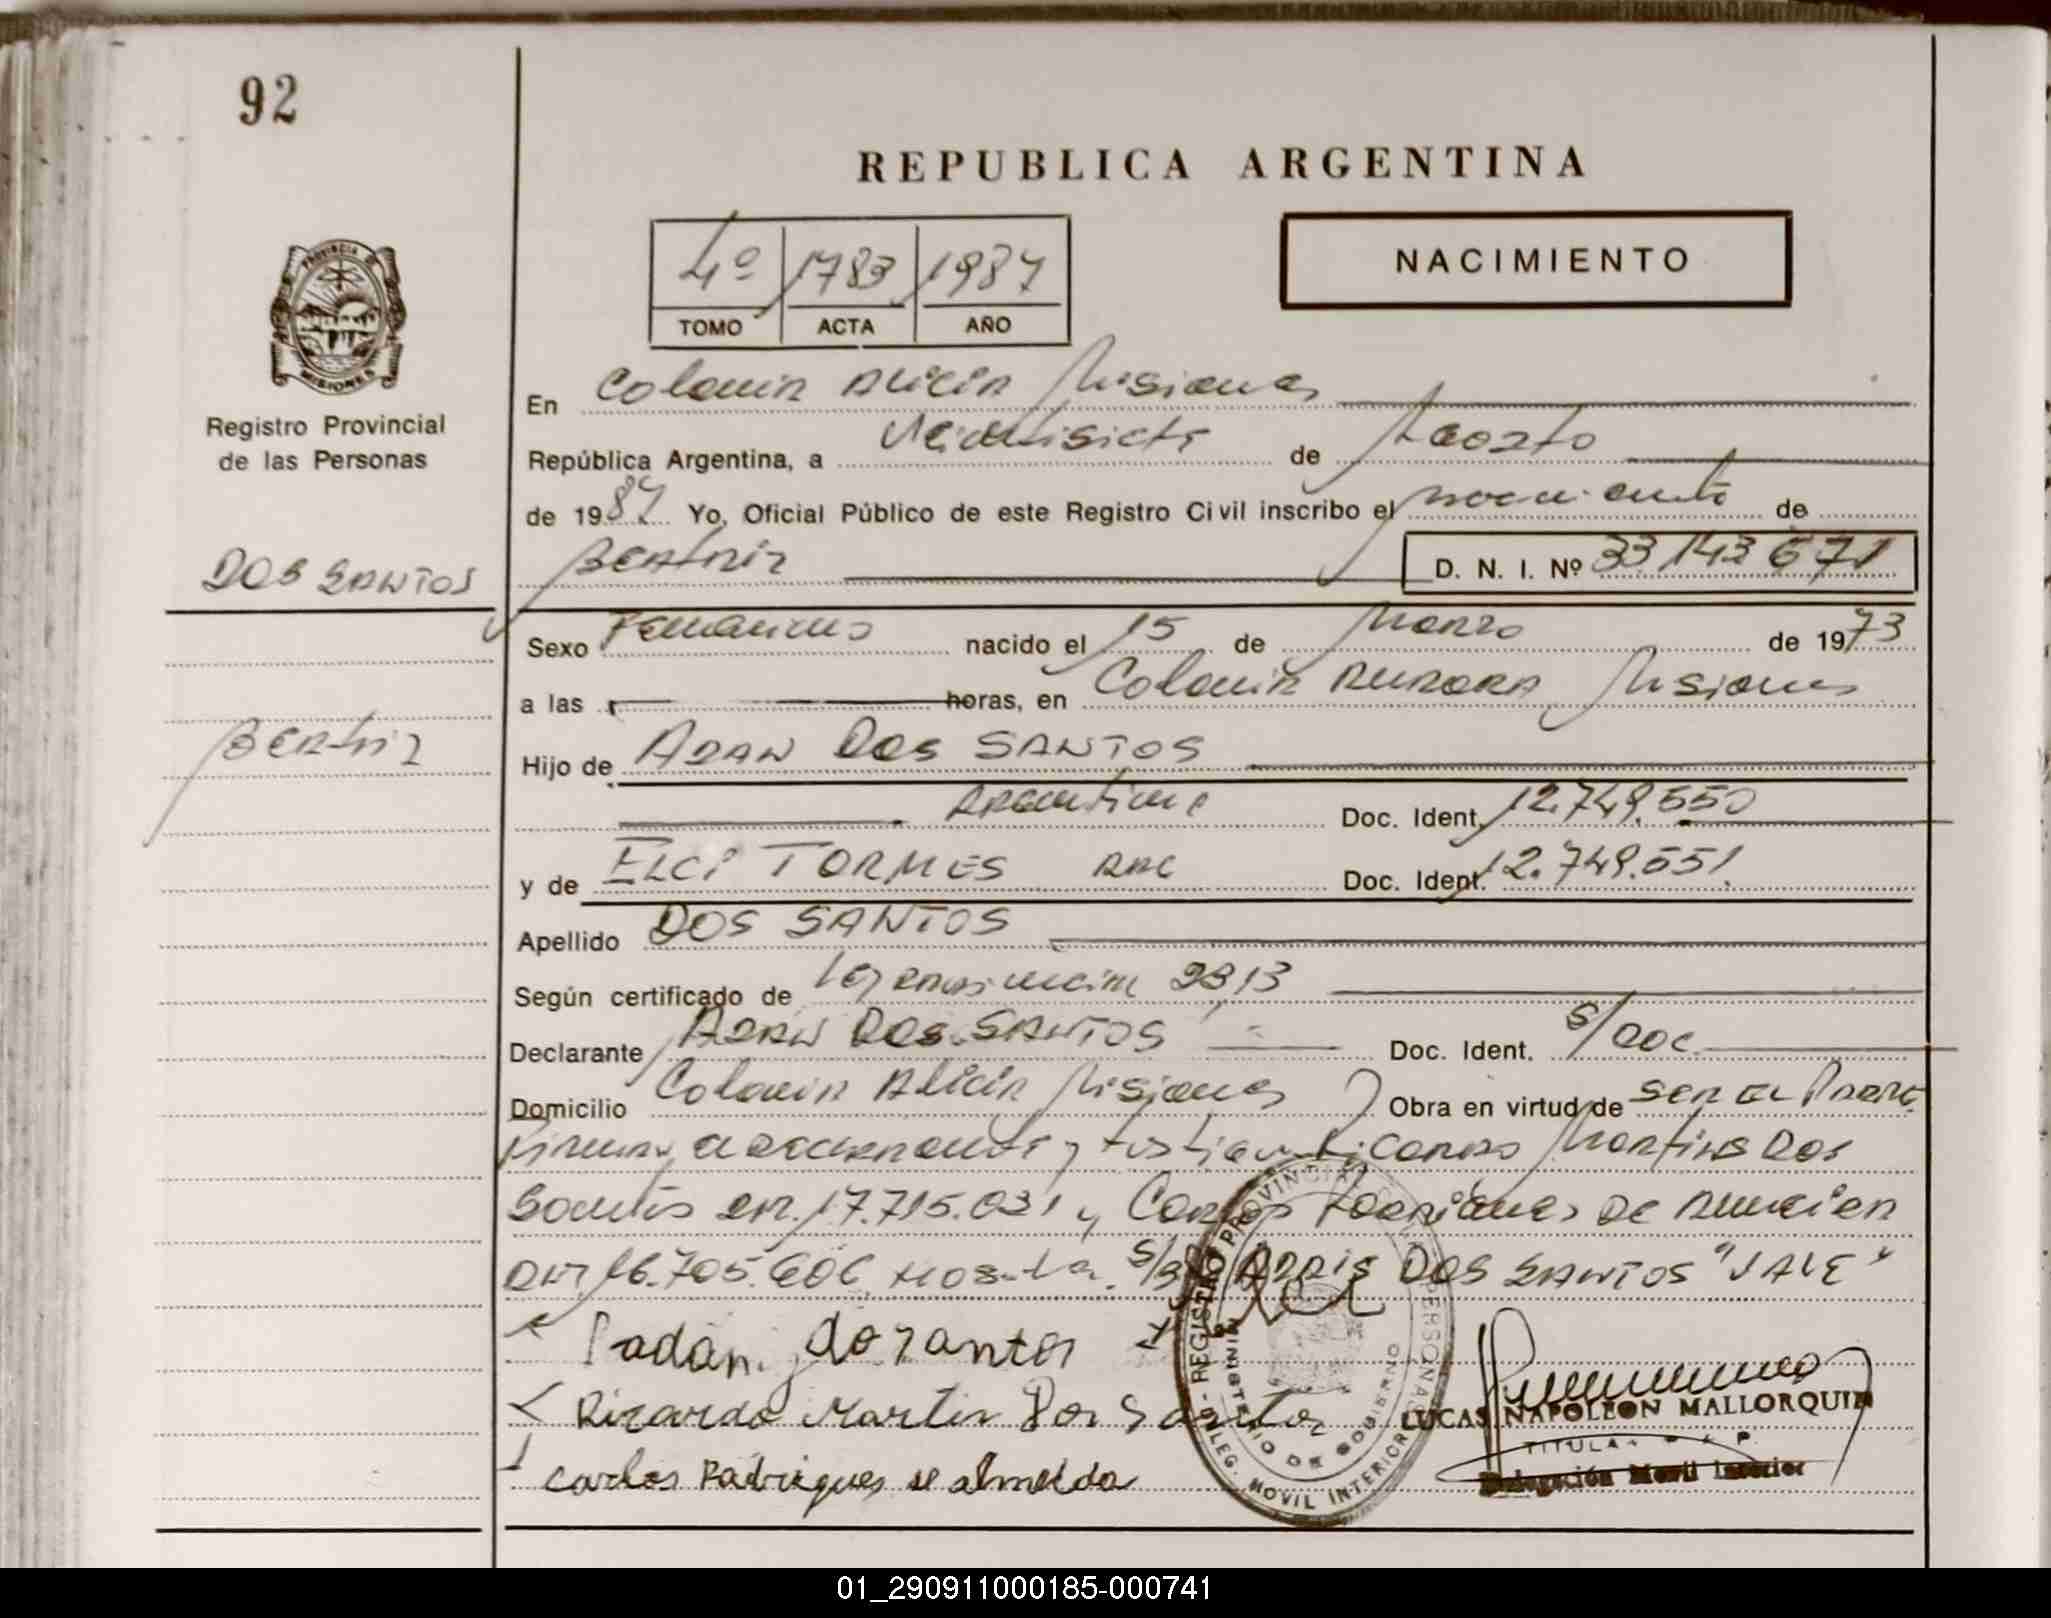 92
REPUBLICA ARGENTINA
4º 1783 1987
TOMO ACTA AÑO
NACIMIENTO
PROVINCIA DE MISIONES
Registro Provincial
de las Personas
En Colonia Alicia Misiones
República Argentina, a Veintisiete de Agosto
de 1987 Yo, Oficial Público de este Registro Civil inscribo el nacimiento de
DOS SANTOS
Beatriz D. N. I. Nº 33143671
Sexo Femenino nacido el 15 de Marzo de 1973
a las horas, en Colonia Aurora Misiones
Beatriz
Hijo de ADAN DOS SANTOS
Argentina Doc. Ident. 12.749.550
y de ELCI TORMES ARG Doc. Ident. 12.749.551
Apellido DOS SANTOS
Según certificado de Ley 2313
Declarante ADAN DOS SANTOS Doc. Ident. S/Doc
Domicilio Colonia Alicia Misiones Obra en virtud de ser el Padre
Firman el declarante y testigos Ricardo Martins Dos
Santos DNI. 17.715.031 y Carlos Rodrigues De
DNI 16.705.606 S/B ADAIS DOS SANTOS "VALE"
Padan dos Santos
Ricardo Martin Dos Santos
Carlos Rodrigues de almeida
REGISTRO PROVINCIAL DE LAS PERSONAS
MINISTERIO DE GOBIERNO
DELEG. MOVIL INTERIOR
LUCAS NAPOLEON MALLORQUIN
TITULAR
Delegación Movil Interior
01_290911000185-000741